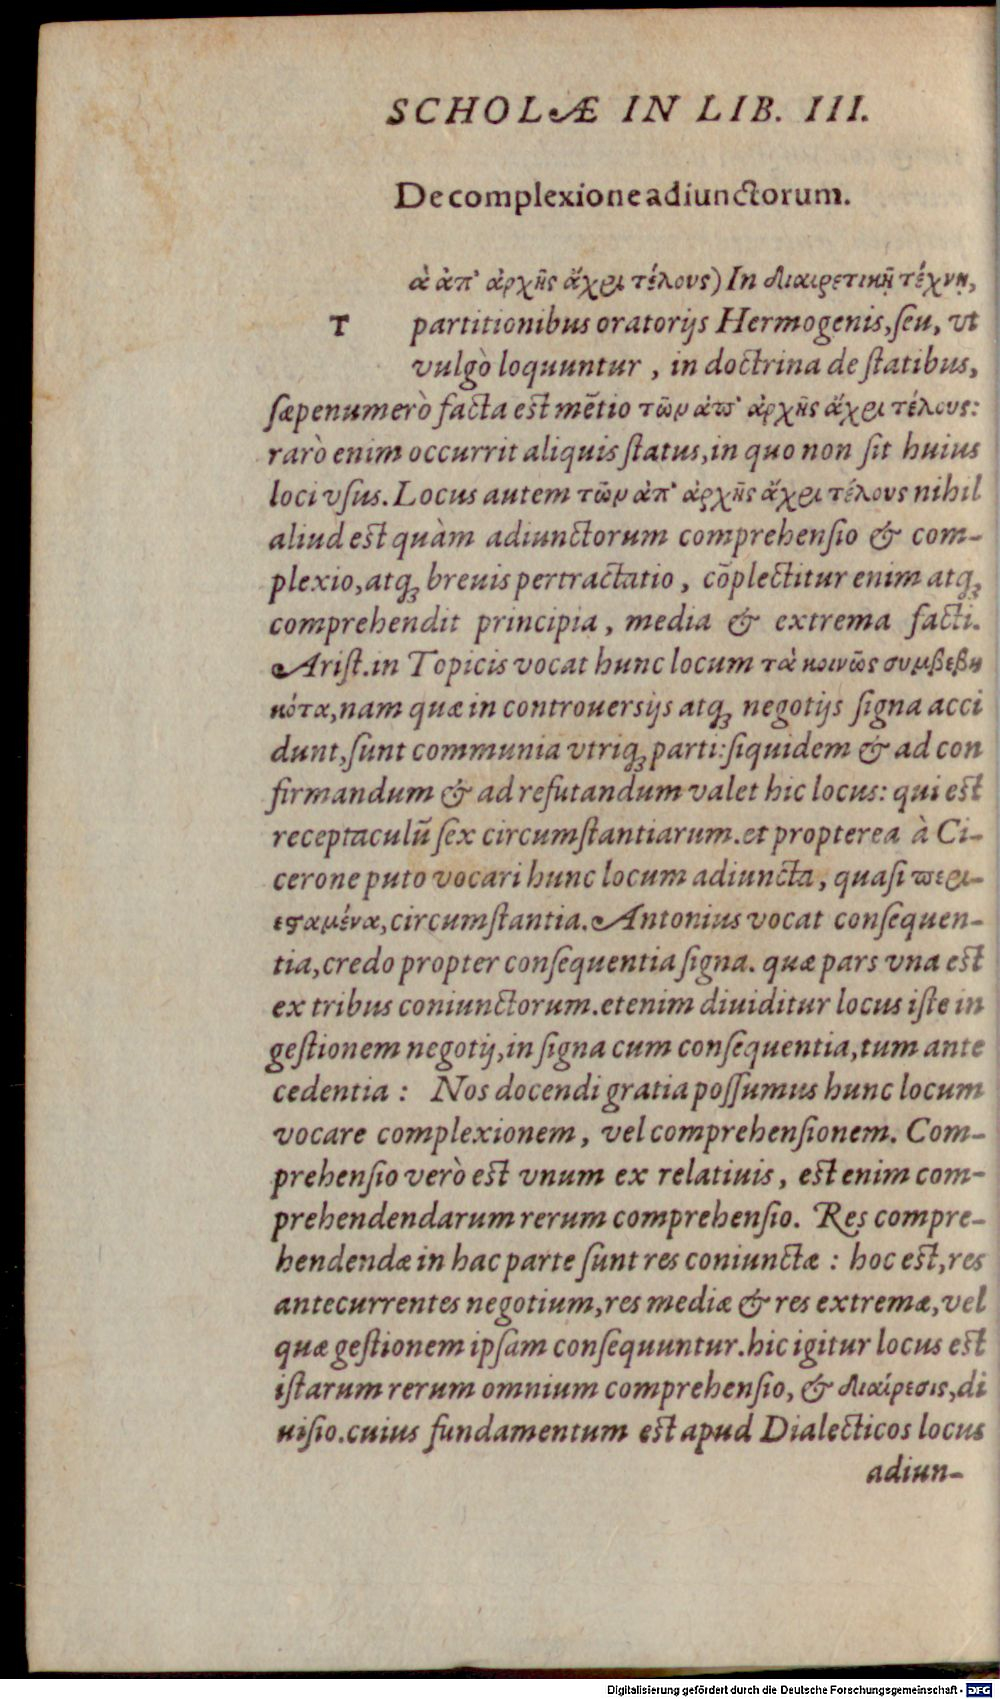 SCHOLÆ IN LIB. III.
De complexione adiunctorum.
Τ ὰ ἀπ' ἀρχῆς ἄχρι τέλους) In διαιρετικῇ τέχνῃ,
partitionibus oratorijs Hermogenis, seu, vt
vulgò loquuntur, in doctrina de statibus,
sæpenumerò facta est mẽtio τῶν ἀπ' ἀρχῆς ἄχρι τέλους:
rarò enim occurrit aliquis status, in quo non sit huius
loci vsus. Locus autem τῶν ἀπ' ἀρχῆς ἄχρι τέλους nihil
aliud est quàm adiunctorum comprehensio & com-
plexio, atq; breuis pertractatio, cõplectitur enim atq;
comprehendit principia, media & extrema facti.
Arist. in Topicis vocat hunc locum τὰ κοινῶς συμβεβη
κότα, nam quæ in controuersijs atq; negotijs signa acci
dunt, sunt communia vtriq; parti: siquidem & ad con
firmandum & ad refutandum valet hic locus: qui est
receptaculũ sex circumstantiarum. et propterea à Ci-
cerone puto vocari hunc locum adiuncta, quasi περι-
εσαμένα, circumstantia. Antonius vocat consequen-
tia, credo propter consequentia signa. quæ pars vna est
ex tribus coniunctorum. etenim diuiditur locus iste in
gestionem negotij, in signa cum consequentia, tum ante
cedentia : Nos docendi gratia possumus hunc locum
vocare complexionem, vel comprehensionem. Com-
prehensio verò est vnum ex relatiuis, est enim com-
prehendendarum rerum comprehensio. Res compre-
hendendæ in hac parte sunt res coniunctæ : hoc est, res
antecurrentes negotium, res mediæ & res extremæ, vel
quæ gestionem ipsam consequuntur. hic igitur locus est
istarum rerum omnium comprehensio, & διαίρεσις, di
uisio. cuius fundamentum est apud Dialecticos locus
adiun-
Digitalisierung gefördert durch die Deutsche Forschungsgemeinschaft - DFG